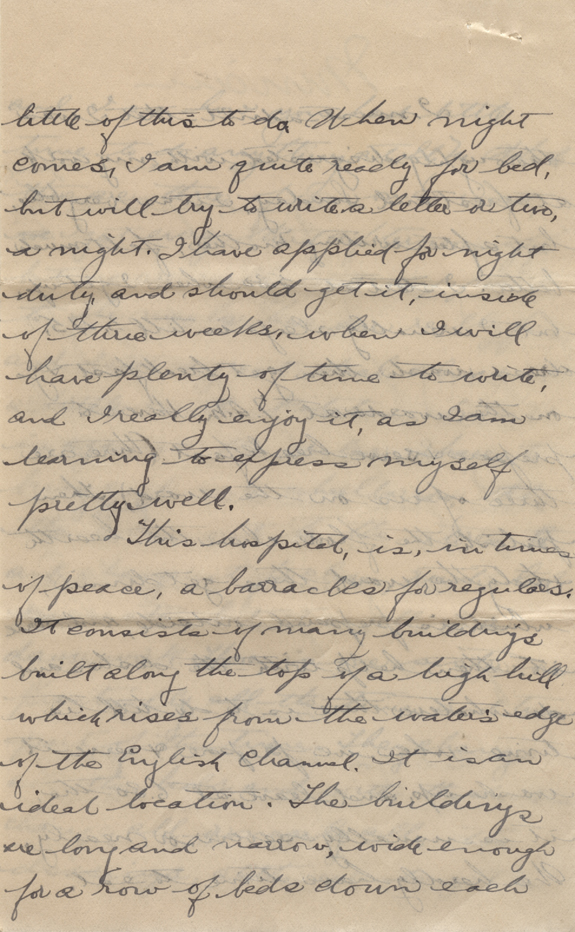 little of this to do. When night
comes, I am quite ready for bed,
but will try to write a letter or two,
a night. I have applied for night
duty, and should get it, inside
of three weeks, when I will
have plenty of time to write,
and I really enjoy it, as I am
learning to express myself
pretty well.
This hospital, is, in times
of peace, a barracks for regulars.
It consists of many buildings
built along the top of a high hill
which rises from the water's edge
of the English Channel. It is an
ideal location. The buildings
are long and narrow, wide enough
for a row of beds down each